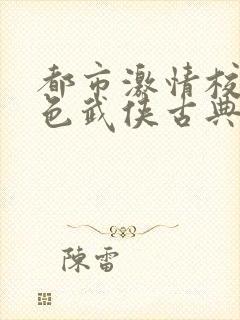 都市激情校
色武侠古典
陳雷